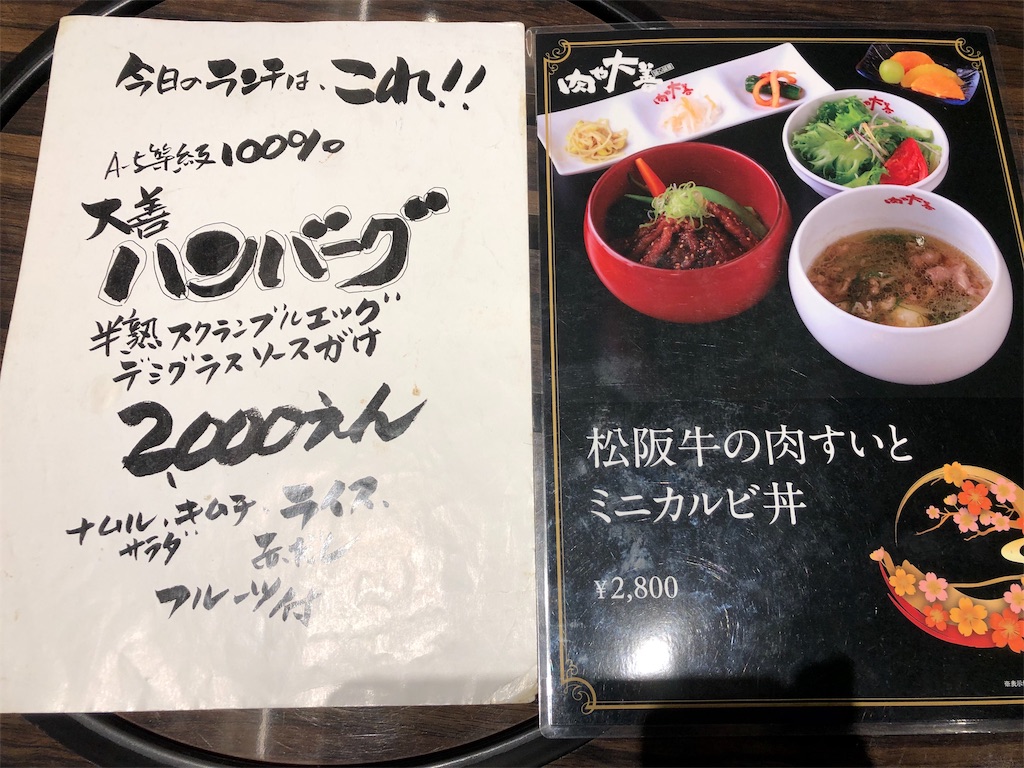 今日のランチは、これ!!
A-5等級100%
大善
ハンバーグ
半熟スクランブルエッグ
デミグラスソースがけ
2,000えん
ナムル、キムチ ライス、
サラダ
フルーツ付
肉や大善
肉や大善
肉や大善
肉や大善
松阪牛の肉すいと
ミニカルビ丼
¥2,800